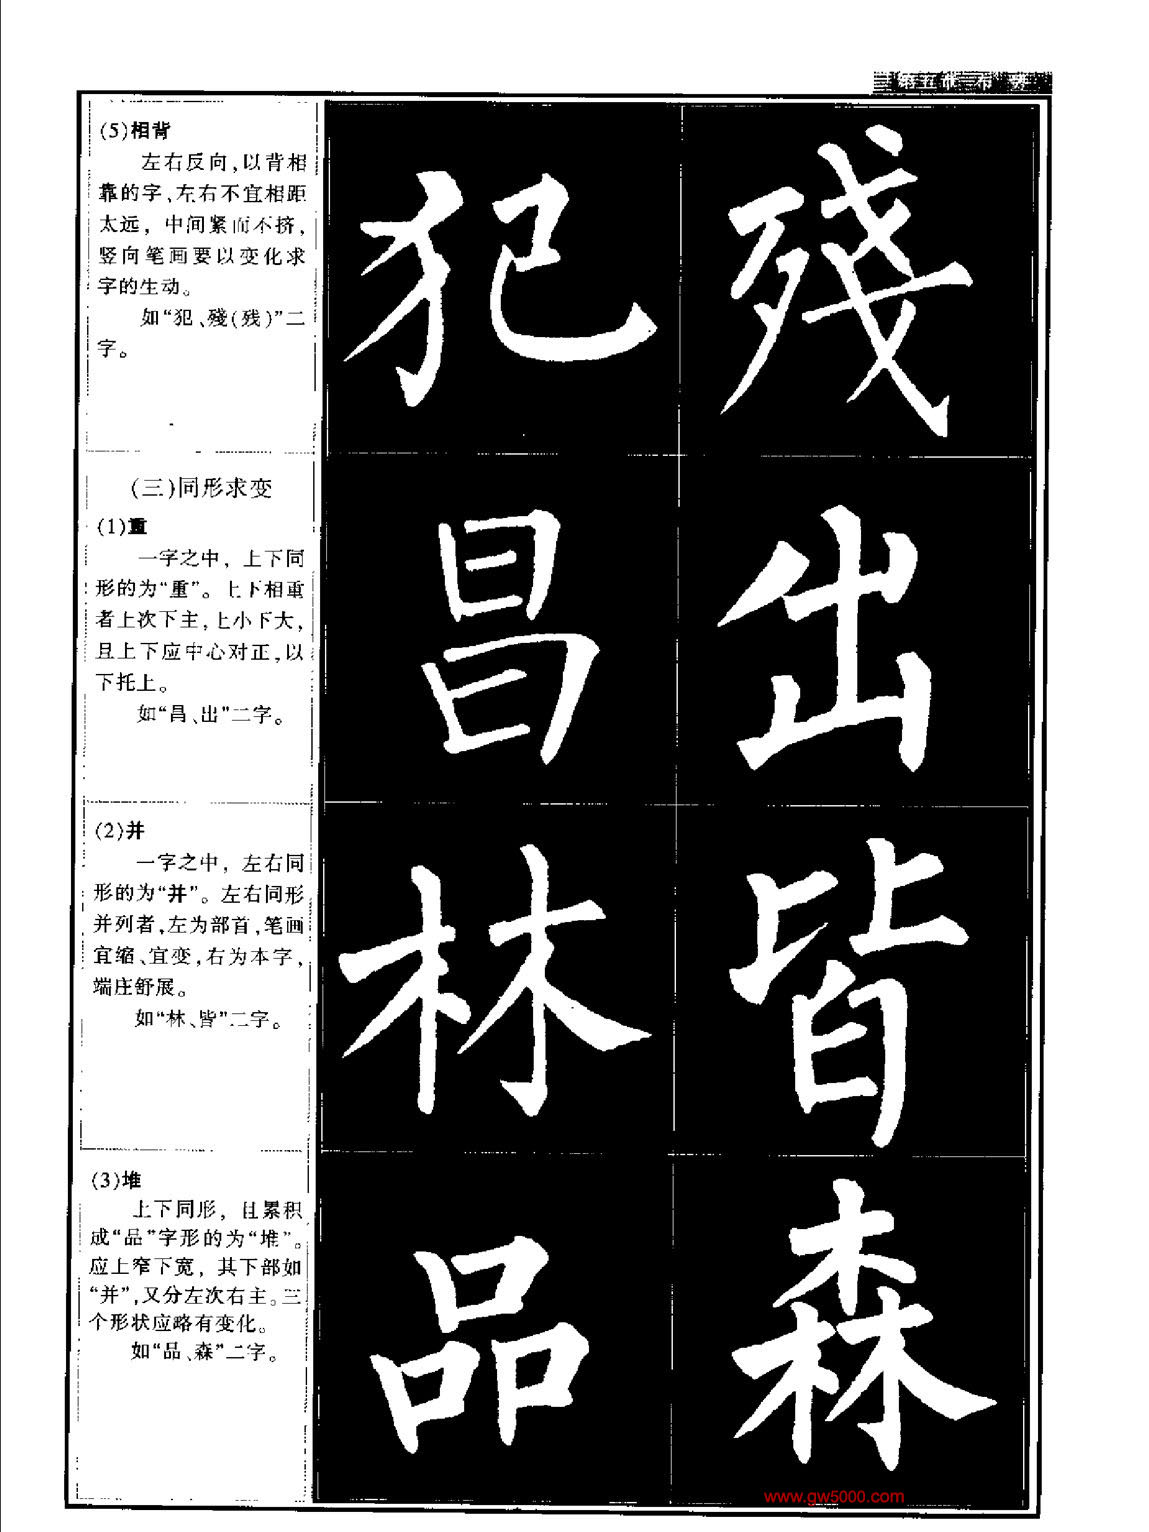 第五章 布 势
(5)相背
左右反向,以背相
靠的字、左右不宜相距
太远，中间紧而不挤,
竖向笔画要以变化求
字的生动。
如“犯、殘(残)”二
字。
犯 殘
(三)同形求变
(1)重
一字之中，上下同
形的为“重”。上下相重
者上次下主,上小下大,
且上下应中心对正,以
下托上。
如“昌、出”二字。
昌 出
(2)并
一字之中，左右同
形的为“并”。左右同形
并列者,左为部首,笔画
宜缩、宜变,右为本字,
端庄舒展。
如“林、皆”二字。
林 皆
(3)堆
上下同形，且累积
成“品”字形的为“堆”。
应上窄下宽，其下部如
“并”,又分左次右主。三
个形状应略有变化。
如“品、森”二字。
品 森
www.gw5000.com